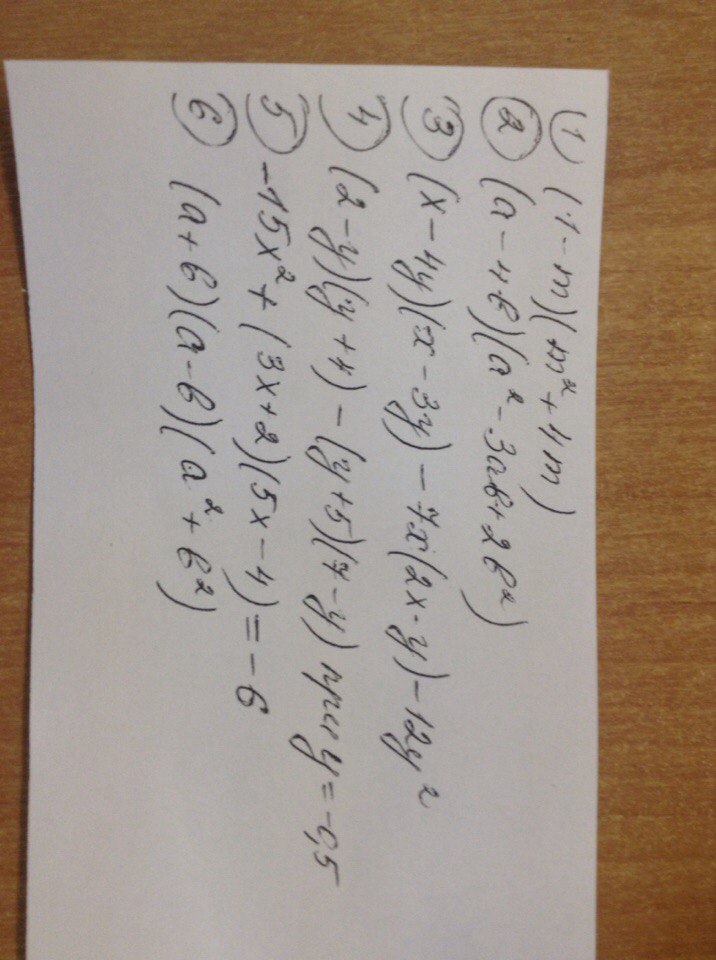 1) (1-m)(m²+4m)
2) (a-4b)(a²-3ab+2b²)
3) (x-4y)(x-3y)-7x(2x-y)-12y²
4) (2-y)(y+4)-(y+5)(7-y) при y=-0,5
5) -15x²+(3x+2)(5x-4)=-6
6) (a+b)(a-b)(a²+b²)